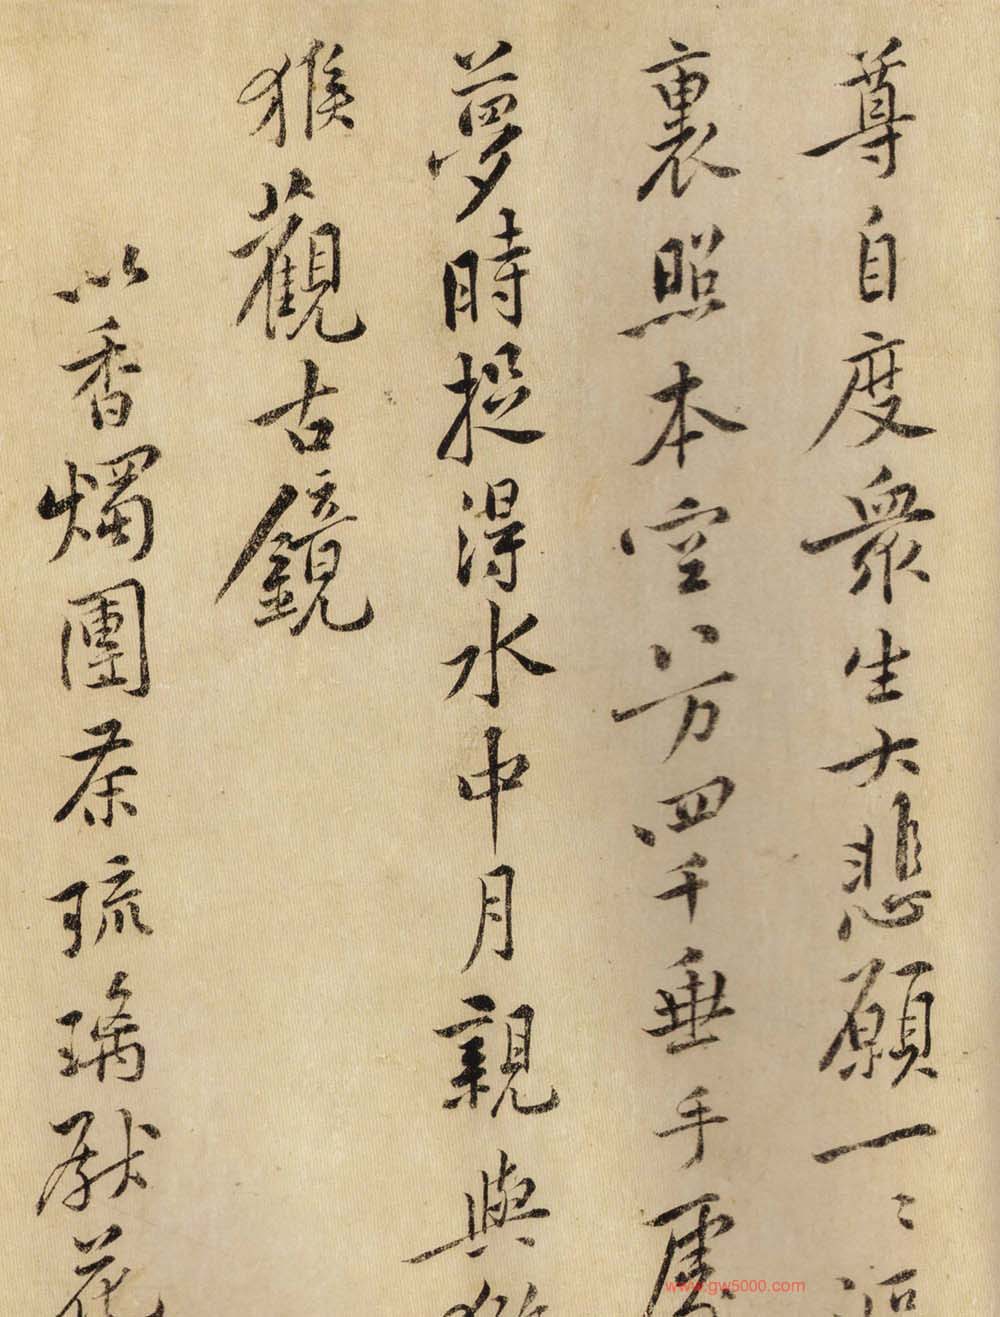 尊自度衆生大悲願一〻
裏照本空八万四千垂手處
夢時捉得水中月親與獼
猴觀古鏡
以香燭團茶琉璃獻花
www.gw5000.com